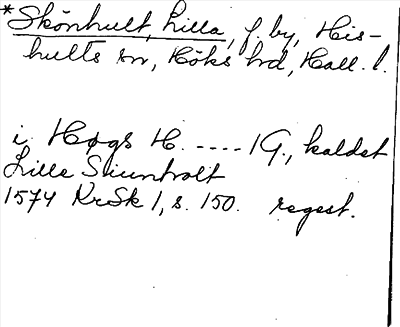 *Skönhult, Lilla, f. by, His-
hults sn, Höks hd, Hall. l.
i Høgs H. ---- 1 G., kaldet
Lille Siunholt
1574 KrSk 1, s. 150. regest.